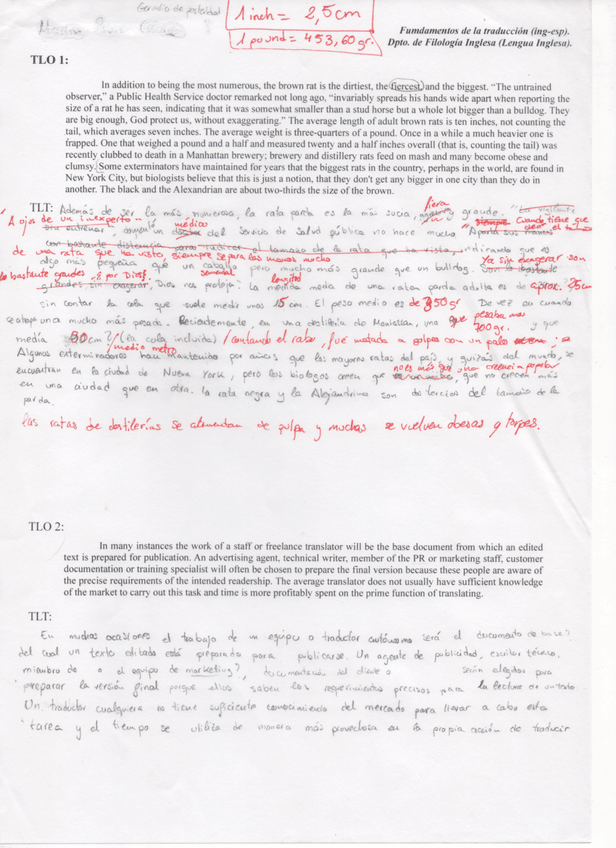 Gerundio de posteridad
1 inch = 2,5cm
1 pound = 453,60 gr.
Fumdamentos de la traducción (ing-esp).
Dpto. de Filología Inglesa (Lengua Inglesa).
TLO 1:
In addition to being the most numerous, the brown rat is the dirtiest, the fiercest, and the biggest. “The untrained
observer,” a Public Health Service doctor remarked not long ago, “invariably spreads his hands wide apart when reporting the
size of a rat he has seen, indicating that it was somewhat smaller than a stud horse but a whole lot bigger than a bulldog. They
are big enough, God protect us, without exaggerating.” The average length of adult brown rats is ten inches, not counting the
tail, which averages seven inches. The average weight is three-quarters of a pound. Once in a while a much heavier one is
frapped. One that weighed a pound and a half and measured twenty and a half inches overall (that is, counting the tail) was
recently clubbed to death in a Manhattan brewery; brewery and distillery rats feed on mash and many become obese and
clumsy. Some exterminators have maintained for years that the biggest rats in the country, perhaps in the world, are found in
New York City, but biologists believe that this is just a notion, that they don't get any bigger in one city than they do in
another. The black and the Alexandrian are about two-thirds the size of the brown.
fiera
TLT: Además de ser la más numerosa, la rata parda es la más sucia, grande.
A ojos de un inexperto médico siempre Cuando tiene que
del Servicio de Salud pública no hace mucho
de una rata que ha visto, siempre separa las manos mucho indicando que es
algo más pequeña que un caballo semental pero mucho más grande que un bulldog. Ya sin exagerar son
lo bastante grandes, Dios nos proteja. La longitud media de una rata parda adulta es de aprox. 25cm
sin contar la cola que suele medir unos 15 cm. El peso medio es de 350gr De vez en cuando
se atrapa una mucho más pesada. Recientemente, en una destilería de Manhattan, una que pesaba unos 700gr. y que
medía 50cm? (la cola incluida) / contando el rabo, fué matada a golpes con un palo
/ medio metro
Algunos exterminadores han mantenido por años que las mayores ratas del país, y quizás del mundo, se
encuentran en la ciudad de Nueva York, pero los biologos creen que no es más que una creencia popular, que no crecen más
en una ciudad que en otra. La rata negra y la Alejandrina son dos tercios del tamaño de la
parda.
Las ratas de destilerías se alimentan de pulpa y muchas se vuelven obesas y torpes.
TLO 2:
In many instances the work of a staff or freelance translator will be the base document from which an edited
text is prepared for publication. An advertising agent, technical writer, member of the PR or marketing staff, customer
documentation or training specialist will often be chosen to prepare the final version because these people are aware of
the precise requirements of the intended readership. The average translator does not usually have sufficient knowledge
of the market to carry out this task and time is more profitably spent on the prime function of translating.
TLT:
En muchas ocasiones el trabajo de un equipo o traductor autónomo será el documento de base?
del cual un texto editado está preparado para publicarse. Un agente de publicidad, escritor técnico,
miembro de o el equipo de marketing?, documentación del cliente o serán elegidos para
preparar la versión final porque ellos saben los requerimientos precisos para la lectura de un texto
Un traductor cualquiera no tiene suficiente conocimiento del mercado para llevar a cabo esta
tarea y el tiempo se utiliza de manera más provechosa en la propia acción de traducir